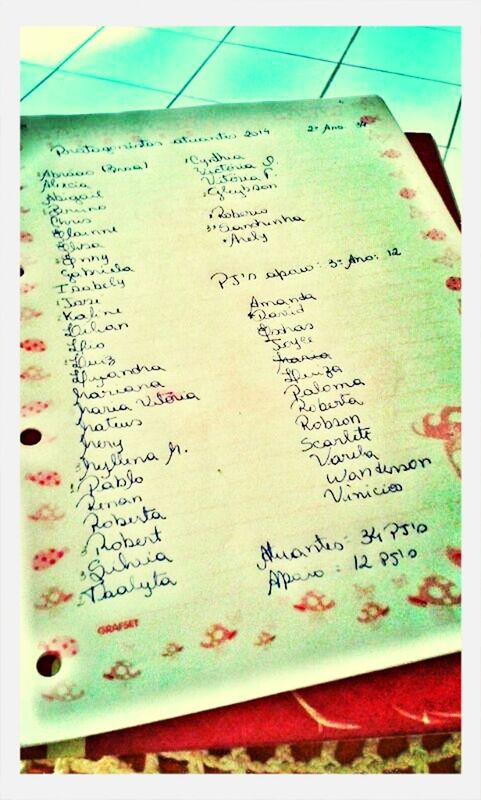 Protagonistas atuantes 2014
2º Ano
Abraão
Alexia
Abigail
Bruno
Chris
Elainne
Elisa
Emny
Gabriela
Isabely
Jose
Kaline
Lilian
Luiz
Lyzandra
Mariana
Maria Vitória
Mateus
Mery
M.
Pablo
Renan
Roberta
Robert
Thalyta
Cynthia
Victória S.
Vitória P
Gleybson
Roberio
Sandrinha
Arely
PJ's apoio: 3º Ano: 12
Amanda
David
Joyce
Maria
Luiza
Paloma
Roberta
Robson
Scarlett
Varela
Wanderson
Vinicios
Atuantes: 34 PJ's
Apoio: 12 PJ's
GRAFSET